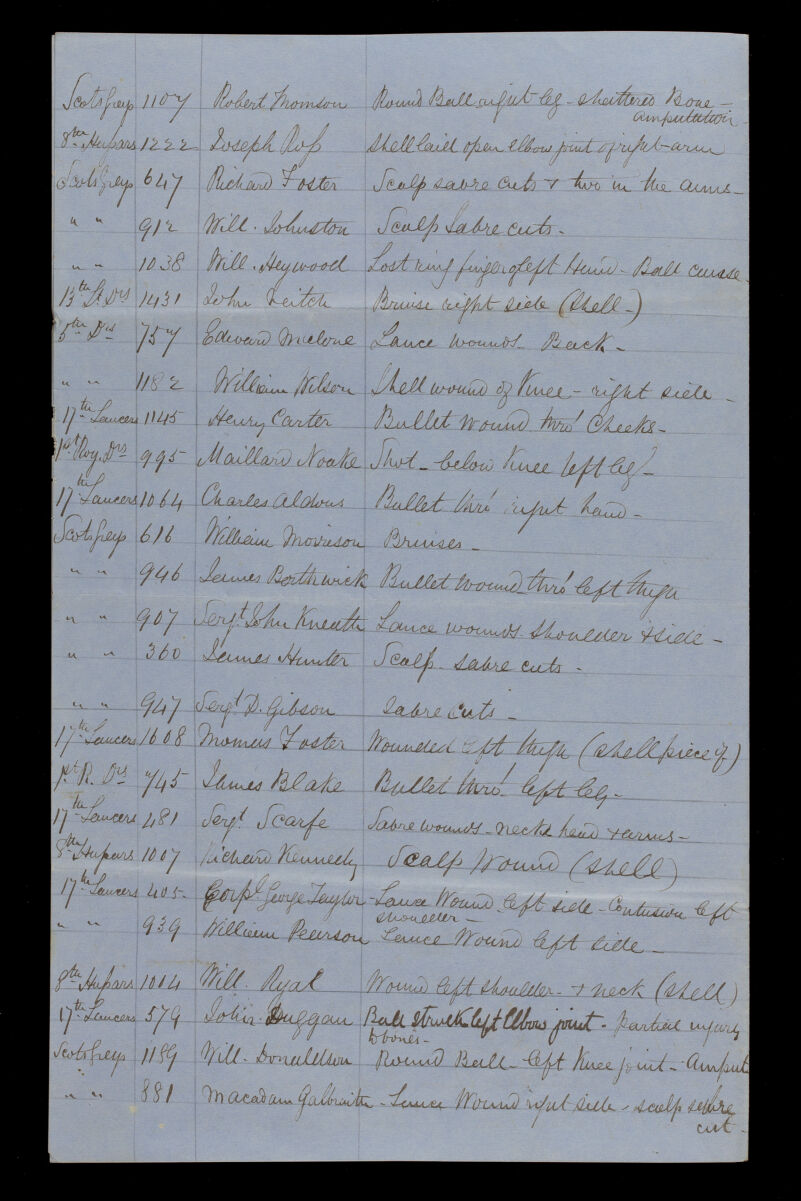 Scots Greys 1107 Robert Thomson Round Ball right leg - shattered Bone -
amputation -
8th Hussars 1222 Joseph Ross Shell laid open elbow joint of right arm
Scots Greys 647 Richard Foster Scalp sabre cuts & two in the arms -
" " 912 Will. Johnston Scalp Sabre cuts -
" " 1038 Will. Heywood Lost ring finger of left Hand - Ball
13th Lt Drs 1431 John Leitch Bruise right side (Shell -)
5th Drs 757 Edward Malone Lance wounds - Back -
" " 1182 William Wilson Shell wound of Knee - right side -
17th Lancers 1145 Henry Carter Bullet wound thro' Cheeks -
1st Roy. Drs 995 Maillard Noake Shot - below Knee left leg -
17th Lancers 1064 Charles Aldous Bullet thro' right hand -
Scots Greys 616 William Morrison Bruises -
" " 946 James Borthwick Bullet wound thro' left thigh
" " 907 Sergt. John Kneath Lance wounds shoulder & side -
" " 360 James Hunter Scalp - sabre cuts -
" " 947 Sergt D. Gibson Sabre cuts -
17th Lancers 1008 Thomas Foster Wounded left thigh (shell piece of)
1st R. Drs 745 James Blake Bullet thro' left leg -
17th Lancers 481 Sergt. Scarfe Sabre wounds - neck head & arms -
8th Hussars 1007 Richard Kennedy Scalp Wound (shell)
17th Lancers 405 - Corpl. George Taylor - Lance Wound left side - Contusion left
shoulder -
" " 939 William Pearson Lance Wound left side -
8th Hussars 1004 Will. Ryal Wound left shoulder - & neck (shell)
17th Lancers 579 John Duggan Ball struck left Elbow joint - partial injury
to bones -
Scots Greys 1189 Will. Donaldson Round Ball - left Knee joint - Amput
" " 881 Macadam Galbraith - Lance Wound right side - scalp sabre
cut -